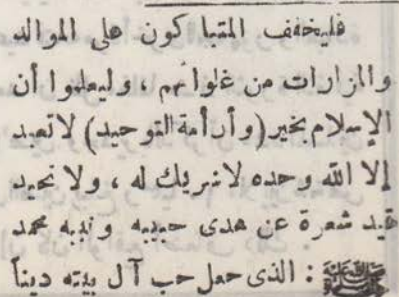 فليخفف المتباكون على الموالد
والمزارات من غلوائهم ، وليعلموا أن
الإسلام بخير (وأن أمة التوحيد) لا تعبد
إلا الله وحده لا شريك له ، ولا تحيد
قيد شعرة عن هدى حبيبه ونبيه محمد
ﷺ : الذى جعل حب آل بيته ديناً